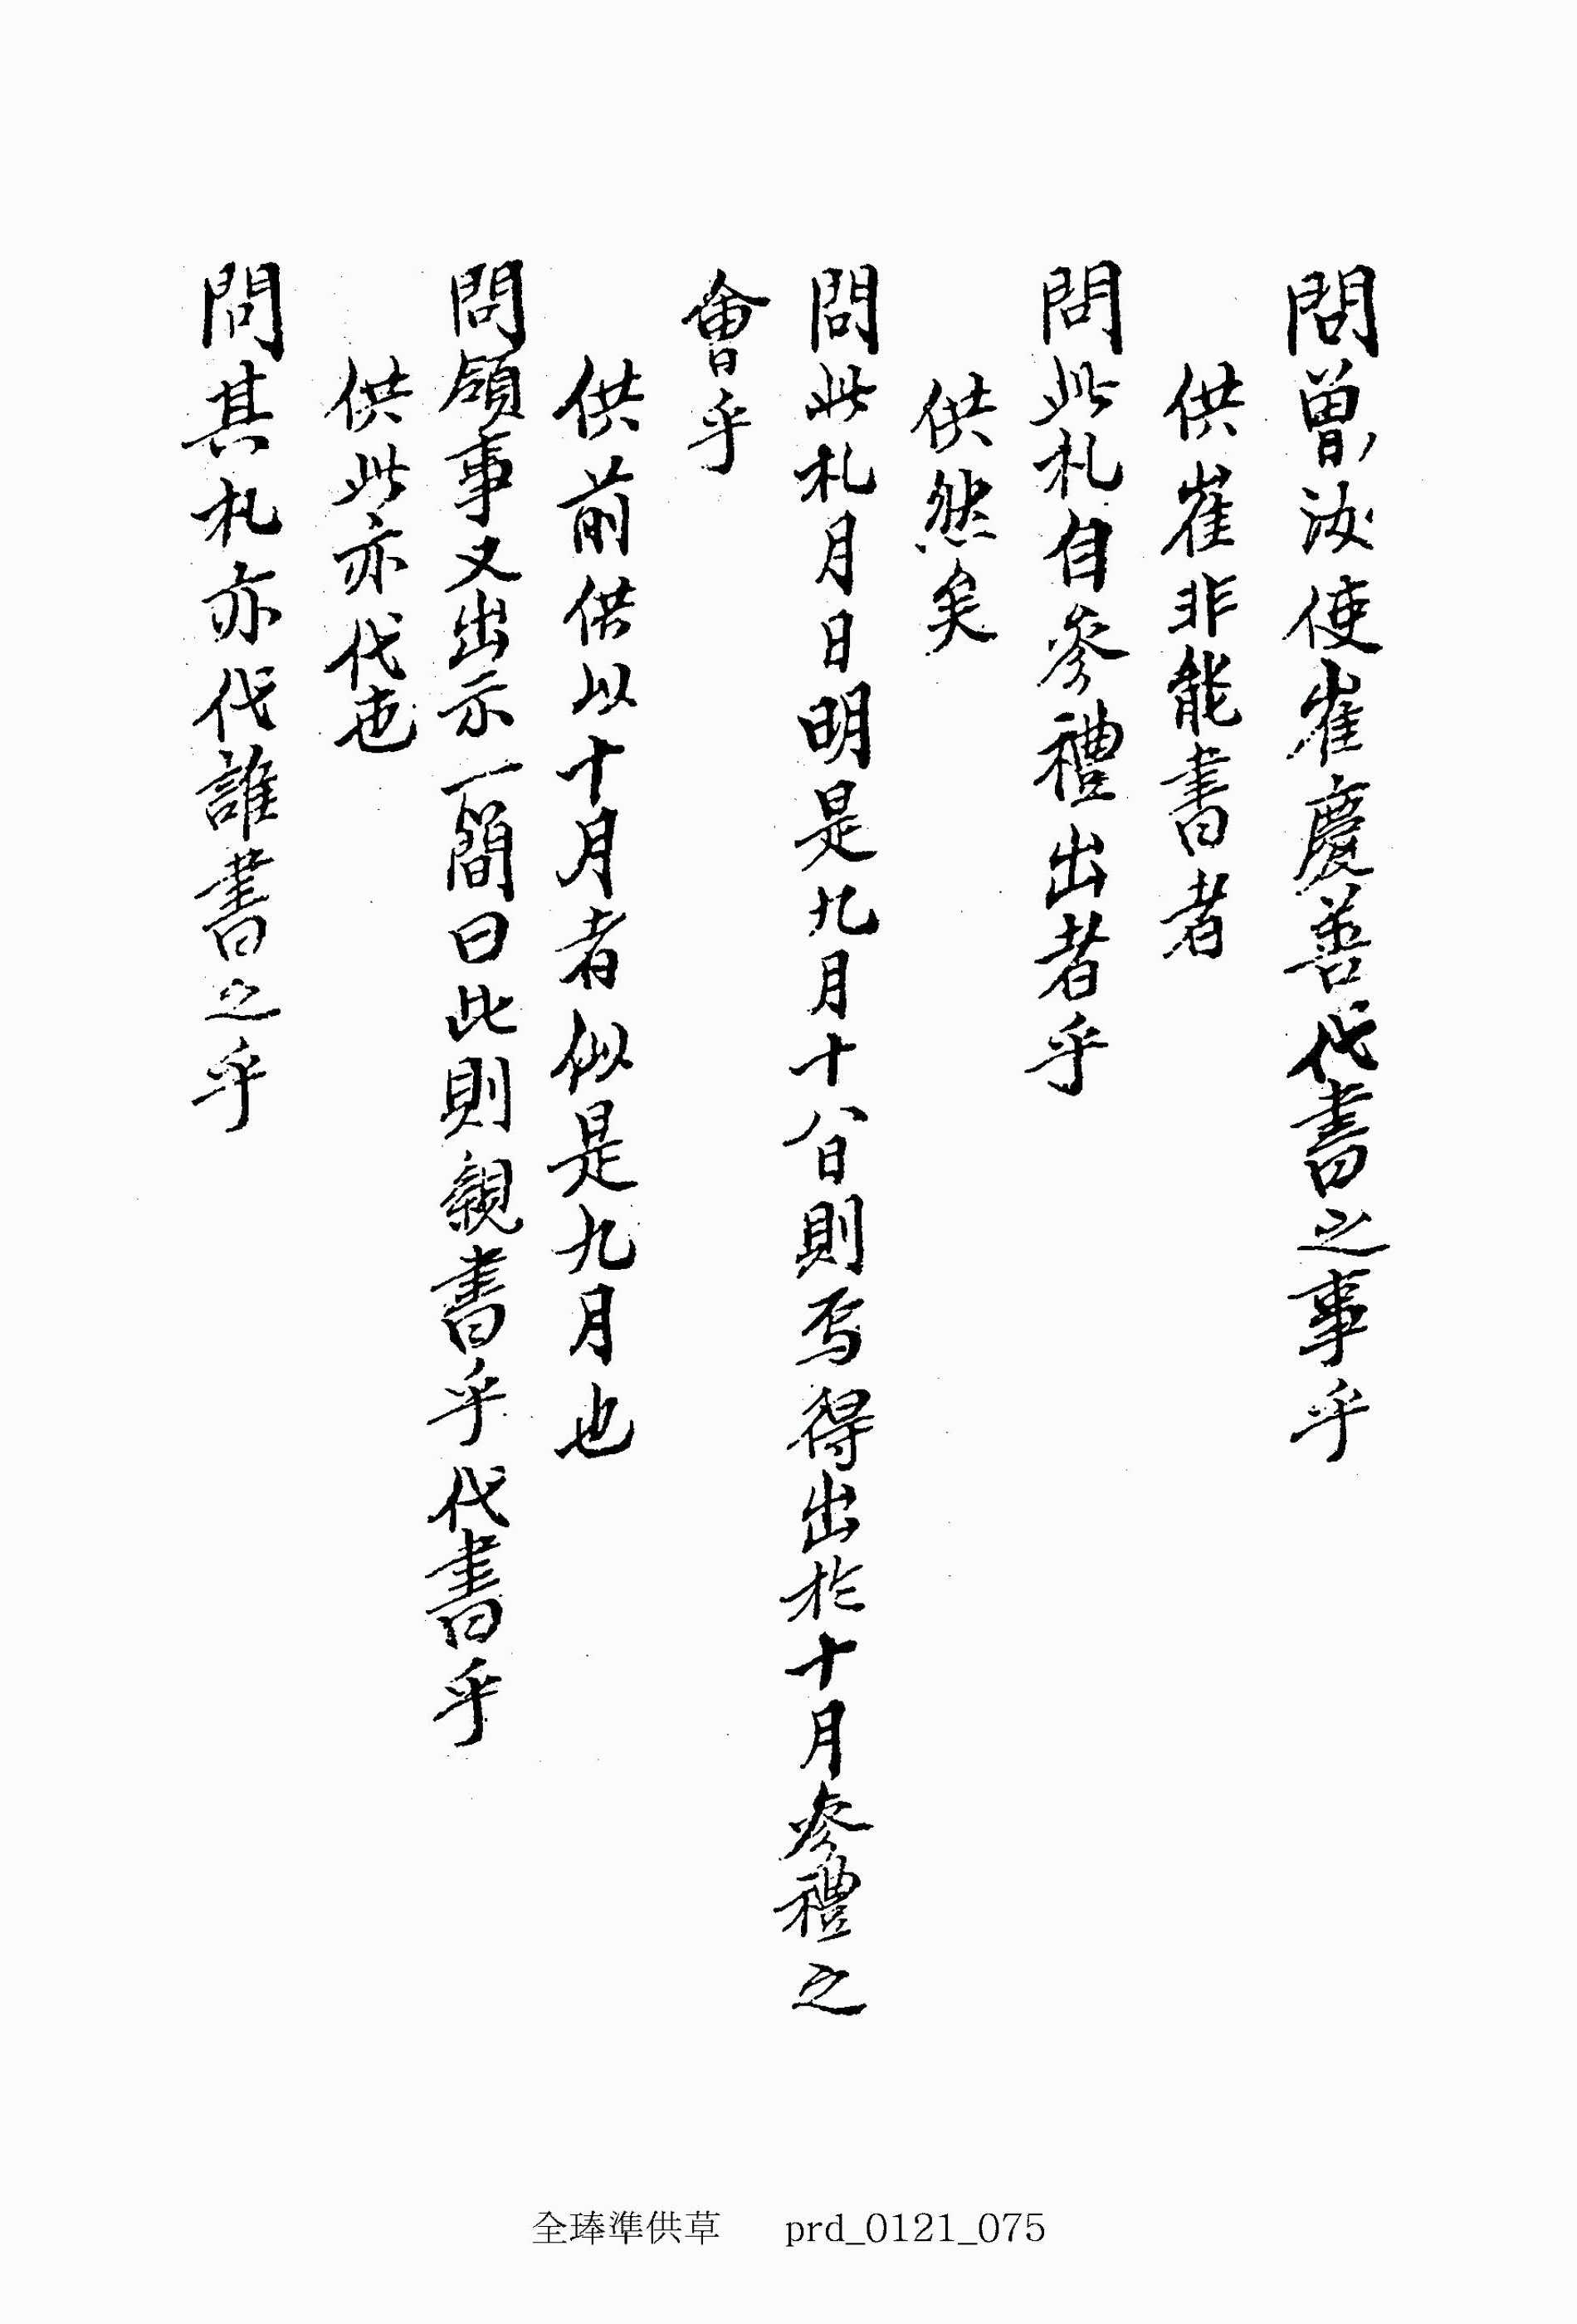 問曾汝使崔慶善代書之事乎
供崔非能書者
問此札自參禮出者乎
供然矣
問此札月日明是九月十八日則焉得出於十月參禮之
會乎
供前供以十月者似是九月也
問領事又出示一簡曰此則親書乎代書乎
供此亦代也
問其札亦代誰書之乎
全琫準供草 prd_0121_075